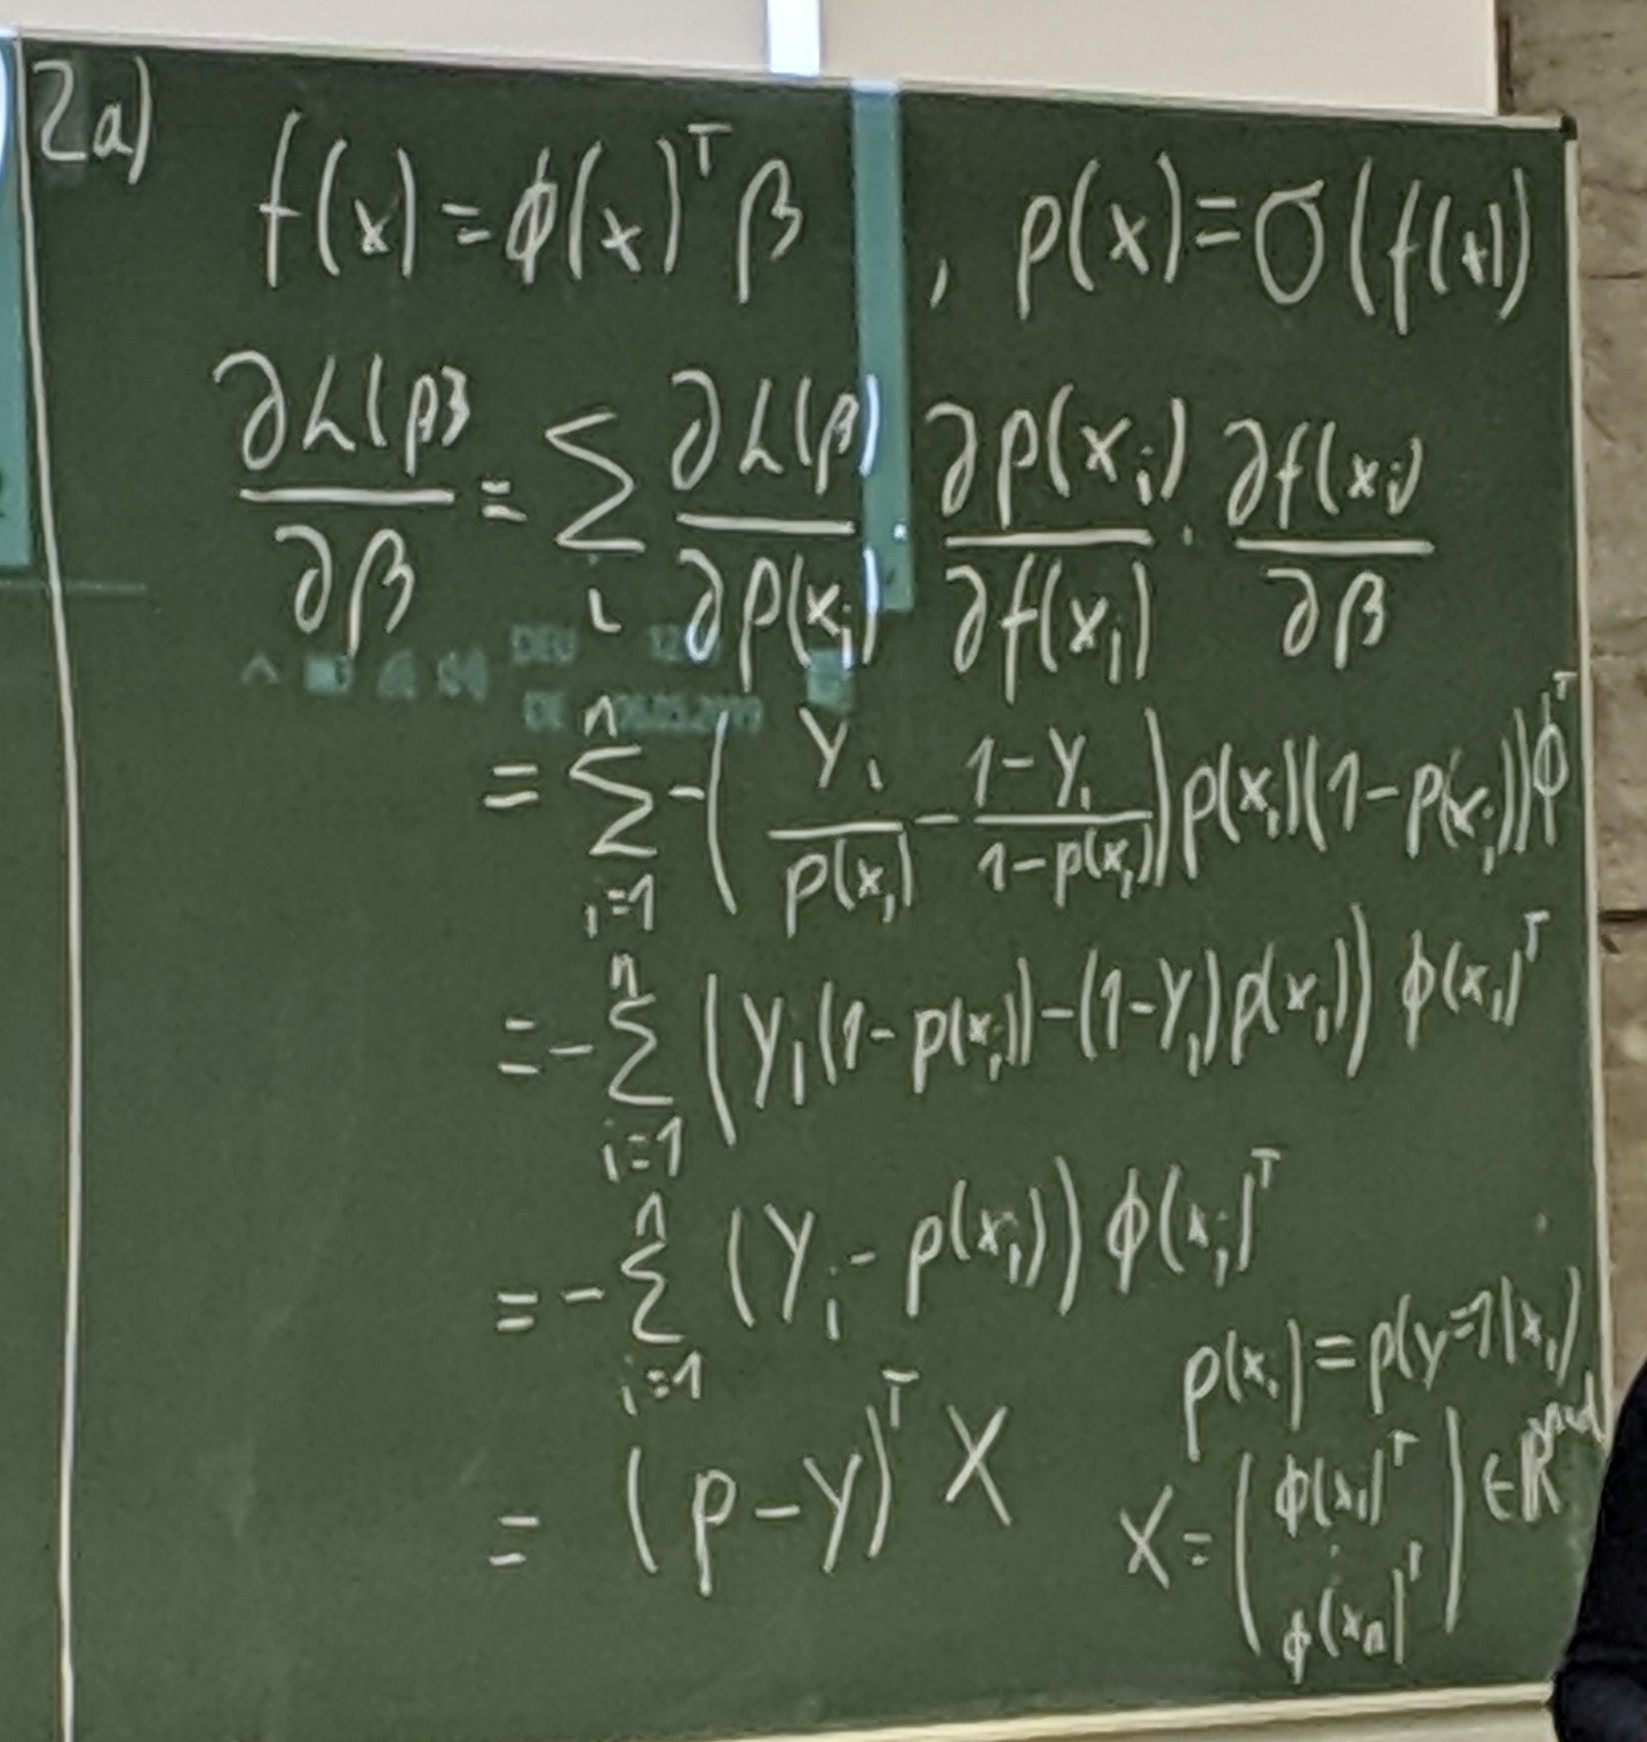 2a)
f(x) = ϕ(x)ᵀ β , p(x) = σ(f(x))
∂L(β) / ∂β = Σ_i ∂L(β) / ∂p(x_i) · ∂p(x_i) / ∂f(x_i) · ∂f(x_i) / ∂β
= Σ_{i=1}^{n} -( y_i / p(x_i) - 1-y_i / 1-p(x_i) ) p(x_i)(1-p(x_i)) ϕᵀ
= - Σ_{i=1}^{n} ( y_i(1-p(x_i)) - (1-y_i)p(x_i) ) ϕ(x_i)ᵀ
= - Σ_{i=1}^{n} (y_i - p(x_i)) ϕ(x_i)ᵀ
p(x_i) = p(y=1|x_i)
= (p-y)ᵀ X
X = ( ϕ(x_1)ᵀ ⋮ ϕ(x_n)ᵀ ) ∈ ℝ^{n×d}
DEU
DE